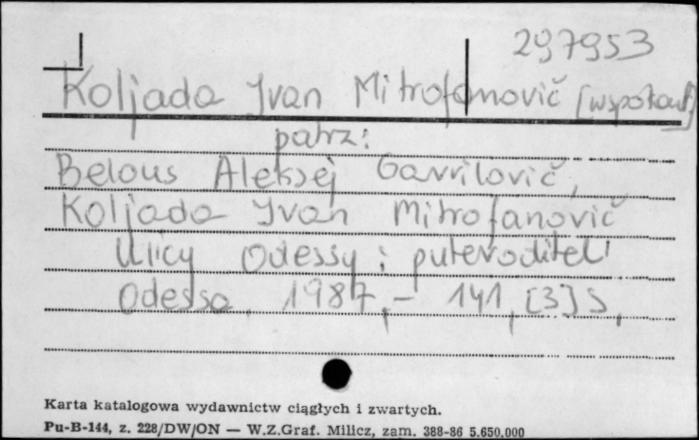 297953
Koljada Ivan Mitrofanovič [współaut]
patrz:
Belous Aleksej Gavrilovič,
Koljada Ivan Mitrofanovič
Ulicy Odessy : putevoditel'
Odessa, 1987, – 141, [3] S.
Karta katalogowa wydawnictw ciągłych i zwartych.
Pu-B-144, z. 228/DW/ON — W.Z.Graf. Milicz, zam. 388-86 5.650.000